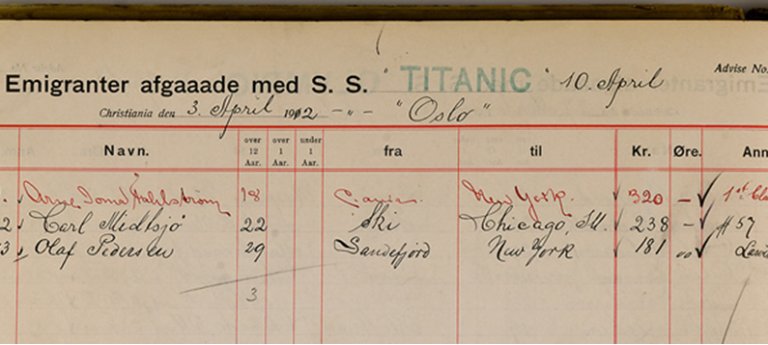 Emigranter afgaaade med S. S. "TITANIC" 10. April
Advise No.
Christiania den 3. April 1912 - " - "Oslo"
Navn. over 12 Aar. over 1 Aar. under 1 Aar. fra til Kr. Øre. Ann
Arne Joma Fahlstrøm 18 New York. 320 - 1st Cla
2 Carl Midtsjø 22 Ski Chicago, Ill. 238 - # 57
3 Olaf Pedersen 29 Sandefjord New York 181 00
3